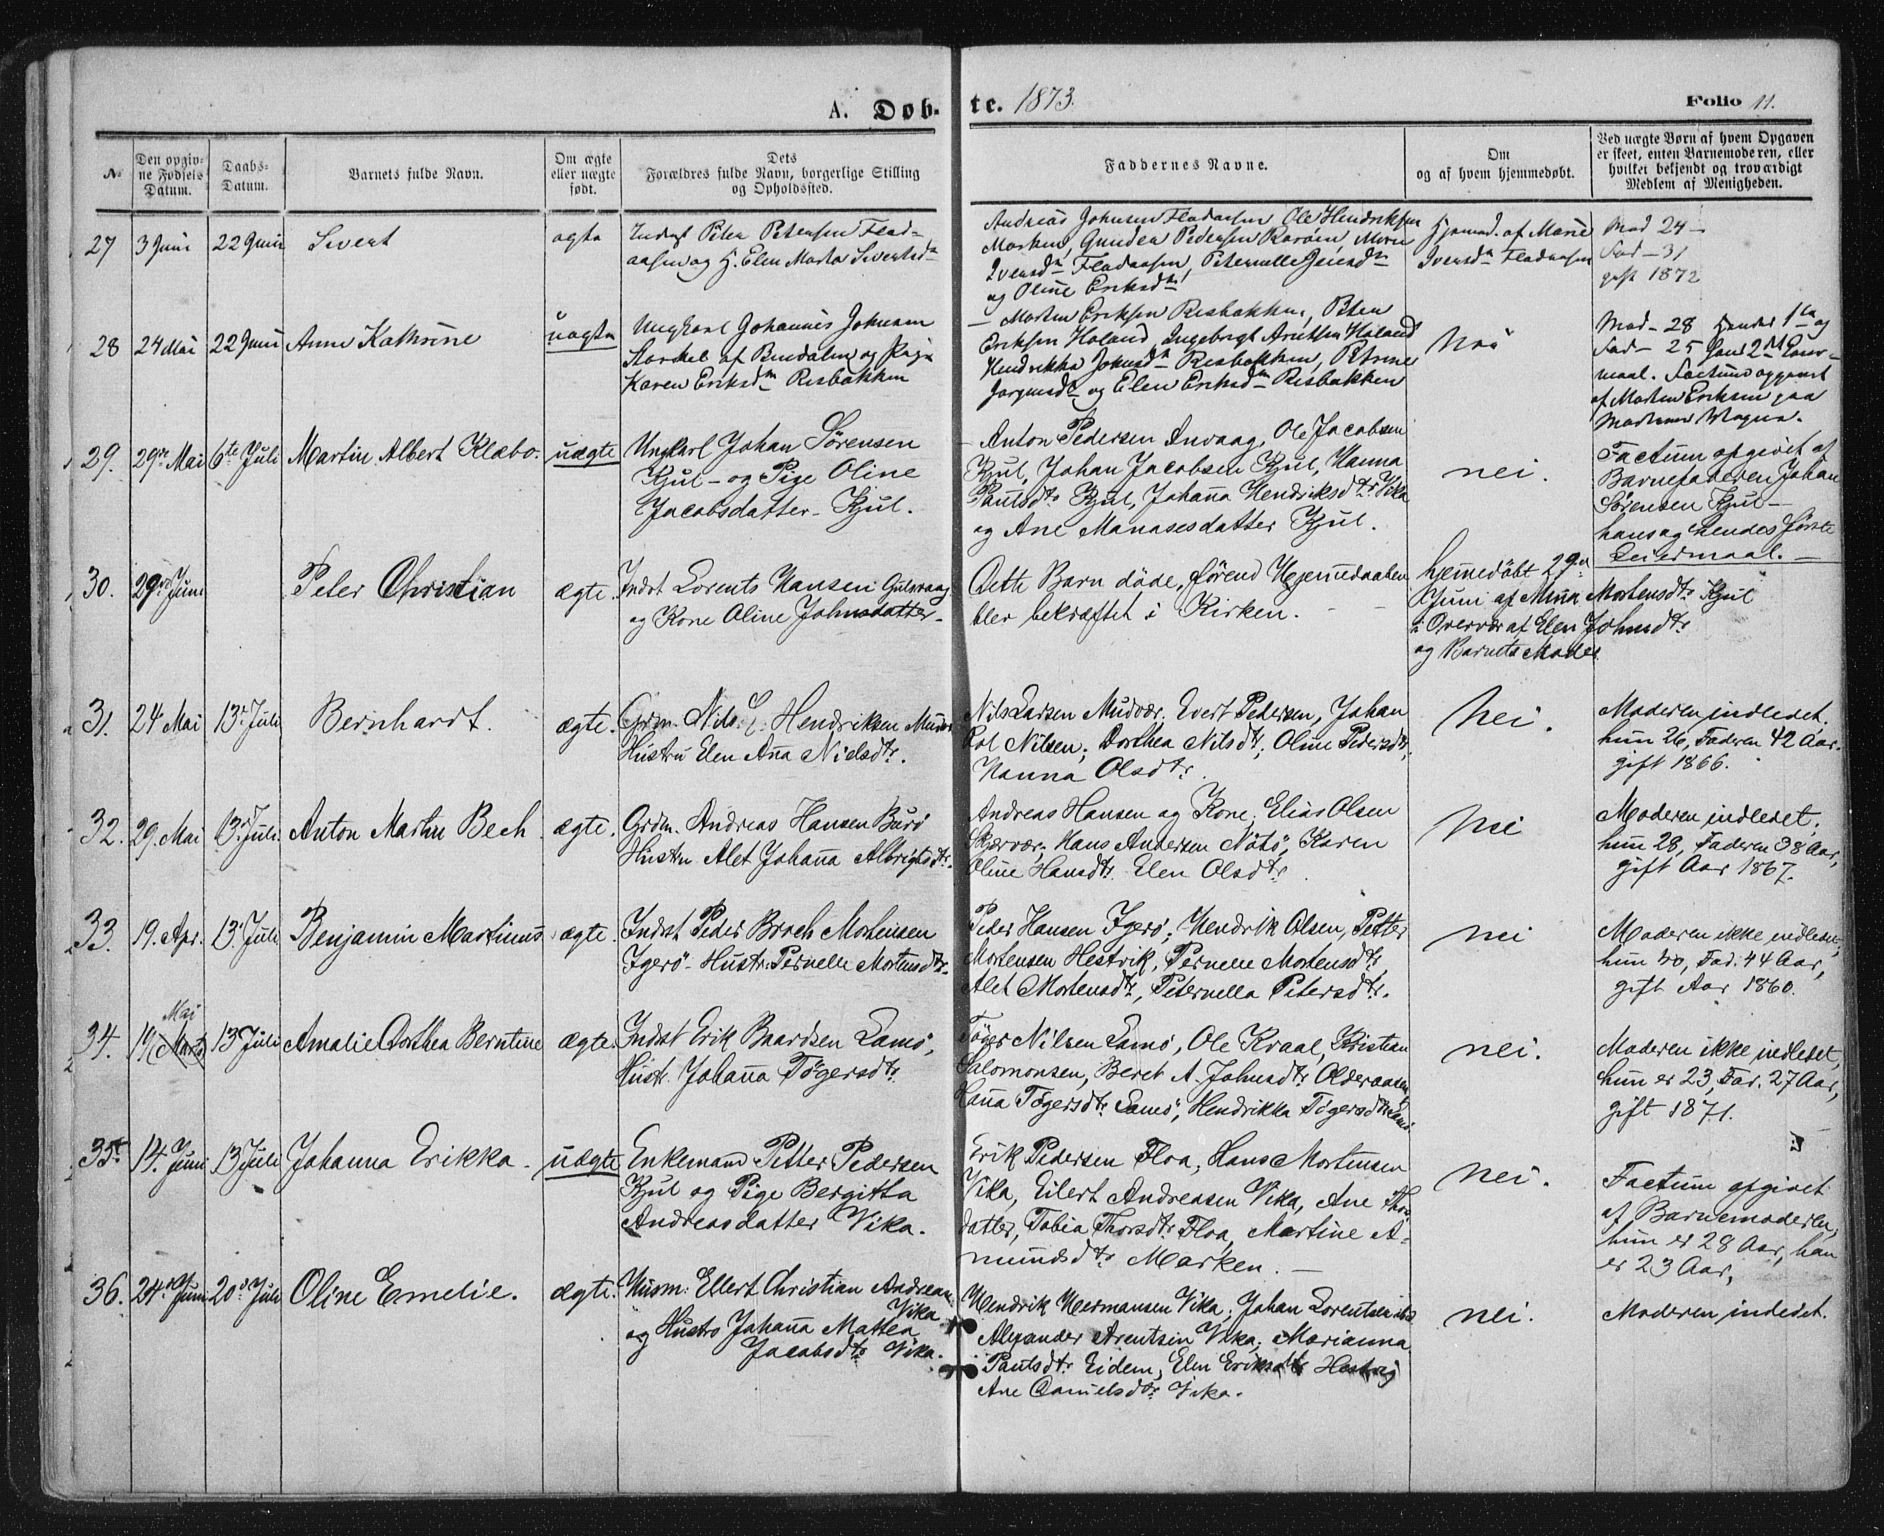 A. Døb- te. 1873. Folio 11.
No
Den opgivne Fødsels Datum.
Daabs-Datum.
Barnets fulde Navn.
Om ægte eller uægte født.
Dets Forældres fulde Navn, borgerlige Stilling og Opholdssted.
Faddernes Navne.
Om og af hvem hjemmedøbt.
Ved uægte Børn af hvem Opgaven er skeet, enten Barnemoderen, eller hvilket bekjendt og troværdigt Medlem af Menigheden.
27 3 Juni 22 Juni Sivert ægte
Inderst Peter Petersen Flad-
aasen og H. Elen Marta Sivertsd
Andreas Johnsen Fladaasen, Ole Hendriksen
Marken, Pedersen
Iversdr Fladaasen,
og Oline Eriksdr
Hjemmed. af Marie
Iversdr Fladaasen
Mod 24 –
Fad – 31
gift 1872
28 24 Mai 22 Juni Anne Kathrine uægte
Ungkarl Johannes Johnsen
af Bindalen og Pige
Karen Eriksdr Risbakken
– Morten Eriksen Risbakken, Peter
Eriksen Holand, Ingebrigt Holand
Hendrikka Johnsdr Risbakken, Petrine
Jørgensdr og Elen Eriksdr Risbakken
Nei
Mod – 28 Hendes 1ste og
Fad – 25 hans 2det Leier-
maal. Factum opgivet
af Morten Eriksen paa
Moderens Vegne.
29. 29de Mai 6te Juli Martin Albert Klæbo. uægte
Ungkarl Johan Sørensen
Kjul – og Pige Oline
Jacobsdatter – Kjul.
– Anton Pedersen Anvaag, Ole Jacobsen
Kjul, Johan Jacobsen Kjul, Hanna
Paulsdtr Kjul, Johanna Hendriksdtr Vika
og Ane Manasesdatter Kjul.
nei.
Factum opgivet af
Barnefaderen Johan
Sørensen Kjul –
hans og hendes første
Leiermaal. –
30. 29de Juni Peter Christian ægte.
Indrst Lorents Hansen Gulsvaag
og Kone Oline Johnsdatter.
Dette Barn døde, førend Hjemmedaaben
blev bekræftet i Kirken. – –
hjemmedøbt 29de
Juni af Mina Mortensdtr Kjul
i Overvær af Elen Johnsdtr
og Barnets Moder
31. 24 Mai 13 Juli Bernhardt. ægte.
Grdm. Nils L. Hendriksen Mudvær
Hustru Elen Ana Nielsdtr.
Nils Larsen Mudvær. Evert Pedersen, Johan
Pol Nilsen; Dorthea Nilsdtr, Oline Pedersdtr,
Hanna Olsdtr.
Nei.
Moderen indledet,
hun 26, Faderen 42 Aar.
gift 1866.
32. 29. Mai 13 Juli. Anton Martin Bech ægte.
Grdm. Andreas Hansen Burø
Hustru Alet Johanna Albrigtsdtr.
Andreas Hansen og Kone, Elias Olsen
Skjærvær, Hans Andersen Nøtø, Karen
Oline Hansdtr. Elen Olsdtr.
Nei
Moderen indledet,
hun 28, Faderen 38 Aar,
gift Aar 1867.
33. 19. Apr. 13. Juli Benjamin Martinus ægte.
Indrst Peder Broch Mortensen
Igerø – Hustr. Pernelle Mortensdtr.
Peder Hansen Igerø; Hendrik Olsen, Petter
Mortensen Hestvik, Pernelle Mortensdtr,
Alet Mortensdtr, Peternella Petersdtr.
nei
Moderen ikke indledet,
hun 40, Fad. 44 Aar,
gift Aar 1860.
Mai
34. 19 Marts 13 Juli Amalie Dorthea Berntine ægte.
Indrst Erik Baardsen Lamø,
Hustr. Johanna Tøgersdtr.
Tøger Nilsen Lamø, Ole Kraal, Kristian
Salomonsen, Beret A. Johnsdtr Olderaasen,
Hanna Tøgersdtr Lamø, Hendrikka Tøgersdtr Lamø
nei.
Moderen ikke indledet,
hun er 23, Far. 27 Aar,
gift 1871.
35. 14. Juni 13 Juli Johanna Erikka. uægte
Enkemand Petter Pedersen
Kjul og Pige Bergitta
Andreasdatter Vika.
Erik Pedersen Floa, Hans Mortensen
Vika, Eilert Andreasen Vika, Ane Thors
datter, Tobia Thorsdtr Floa, Martine A-
mundsdtr Marken. –
nei.
Factum opgivet
af Barnemoderen,
hun er 28 Aar, han
er 23 Aar,
36. 24de Juni 20de Juli Oline Emelie. ægte.
Husm. Ellert Christian Andreasen
Vika
og Hustr Johanna Mattea
Jacobsdtr Vika.
Hendrik Hermansen Vika, Johan Lorentsen ibd
Alexander Arentsen Vika, Marianna
Paulsdtr Eidem, Elen Eriksdtr Hestvig
Ane Danielsdtr Vika.
nei.
Moderen indledet.